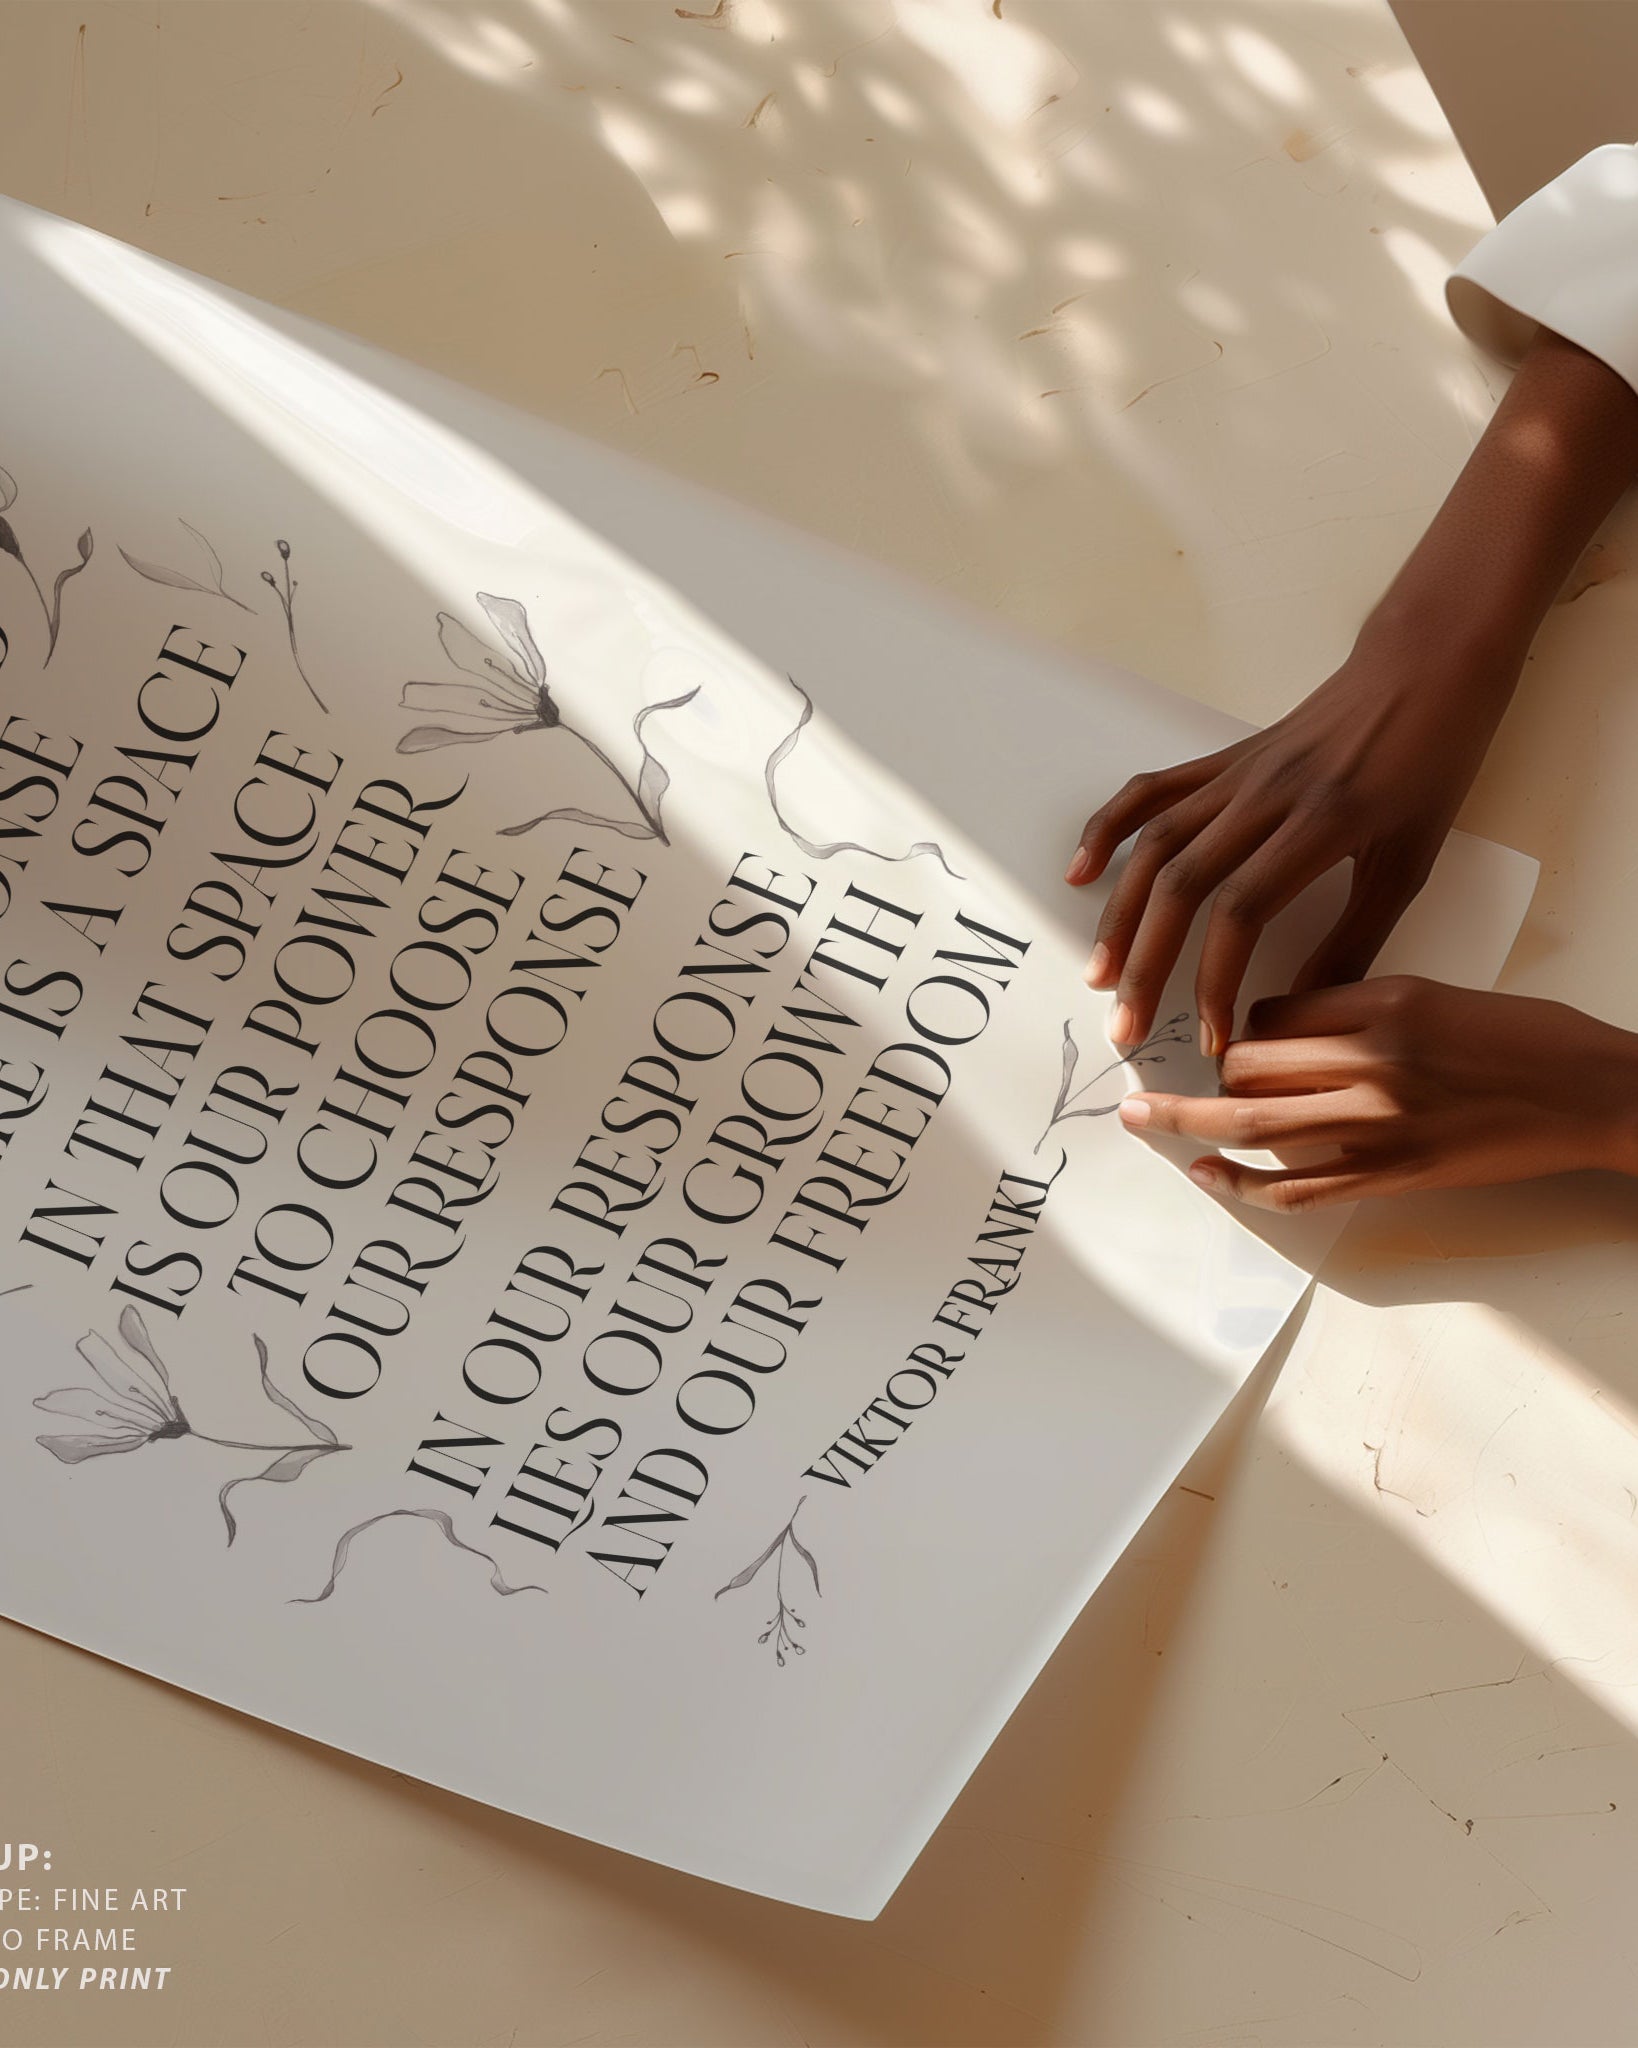 ONSE
RE IS A SPACE
IN THAT SPACE
IS OUR POWER
TO CHOOSE
OUR RESPONSE
IN OUR RESPONSE
LIES OUR GROWTH
AND OUR FREEDOM
VIKTOR FRANKL
UP:
PE: FINE ART
O FRAME
ONLY PRINT